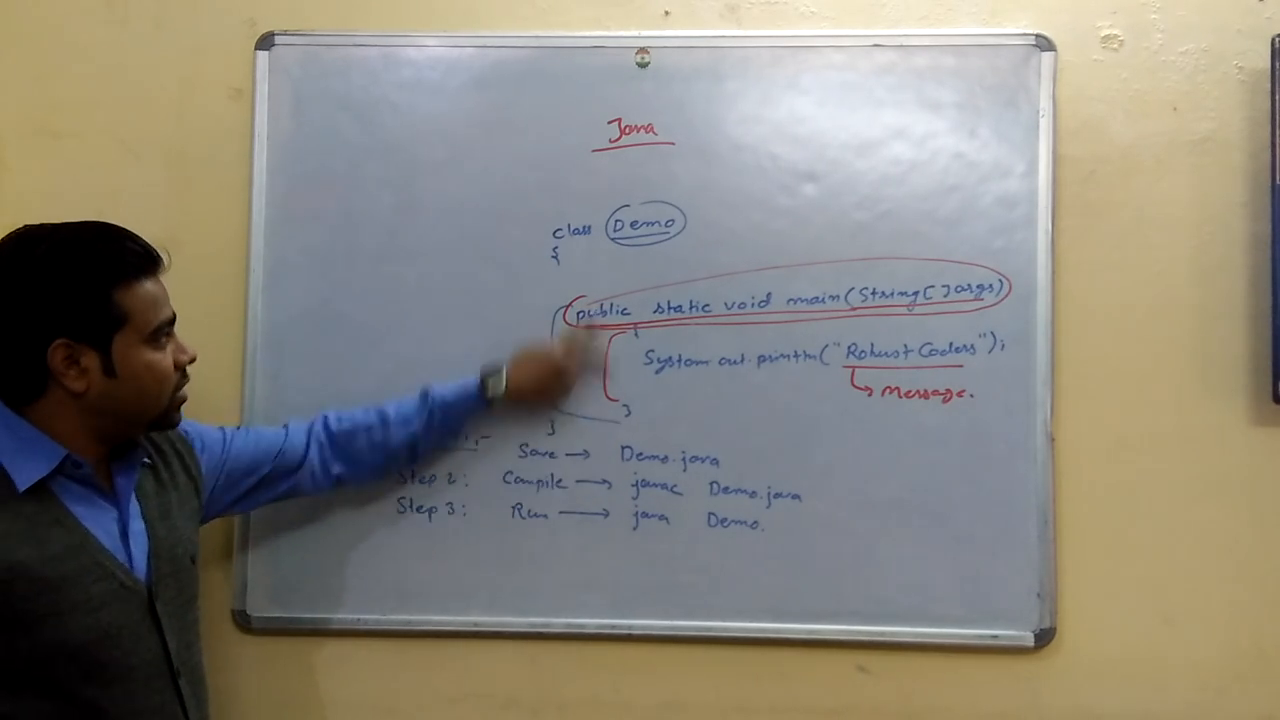 Java
class Demo
{
public static void main(String[]args)
{
System.out.println("Robust Coders");
→ Message.
}
}
Save → Demo.java
Step 2: Compile → javac Demo.java
Step 3: Run → java Demo.